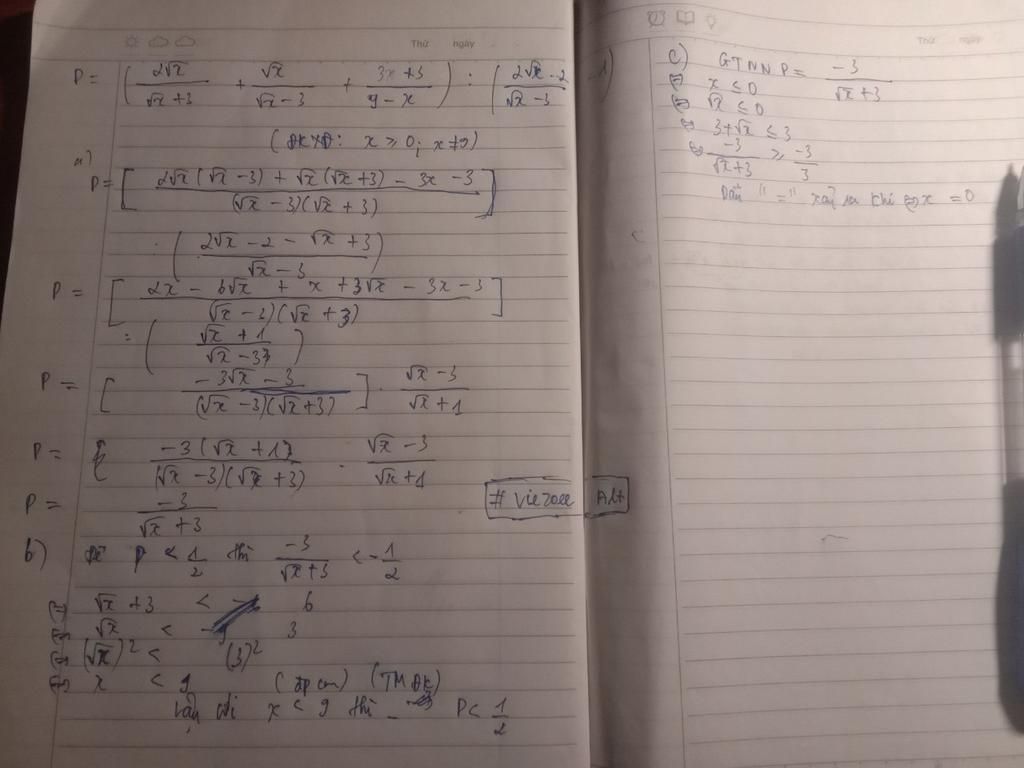 Thứ ngày
P = ( 2√x / √x+3 + √x / √x-3 + 3x+3 / 9-x ) : ( 2√x-2 / √x-3 - 1 )
(ĐKXĐ: x ≥ 0; x ≠ 9)
a)
P = [ 2√x(√x-3) + √x(√x+3) - 3x - 3 / (√x-3)(√x+3) ]
: ( 2√x - 2 - √x + 3 / √x - 3 )
P = [ 2x - 6√x + x + 3√x - 3x - 3 / (√x-3)(√x+3) ]
: ( √x + 1 / √x - 3 )
P = [ -3√x - 3 / (√x-3)(√x+3) ] . √x-3 / √x+1
P = -3(√x+1) / (√x-3)(√x+3) . √x-3 / √x+1
P = -3 / √x+3
#Vie2022 Alt
b) Để P < 1/2 thì -3 / √x+3 < -1/2
⇔ √x + 3 < 6
⇔ √x < 3
⇔ (√x)² < (3)²
⇔ x < 9 (đpcm) (TMĐK)
Vậy với x < 9 thì P < 1/2
Thứ ngày
c) GTNN P = -3 / √x+3
⇔ x ≤ 0
⇔ √x ≤ 0
⇔ 3+√x ≤ 3
⇔ -3 / √x+3 ≥ -3 / 3
Dấu "=" xảy ra khi ⇔ x = 0